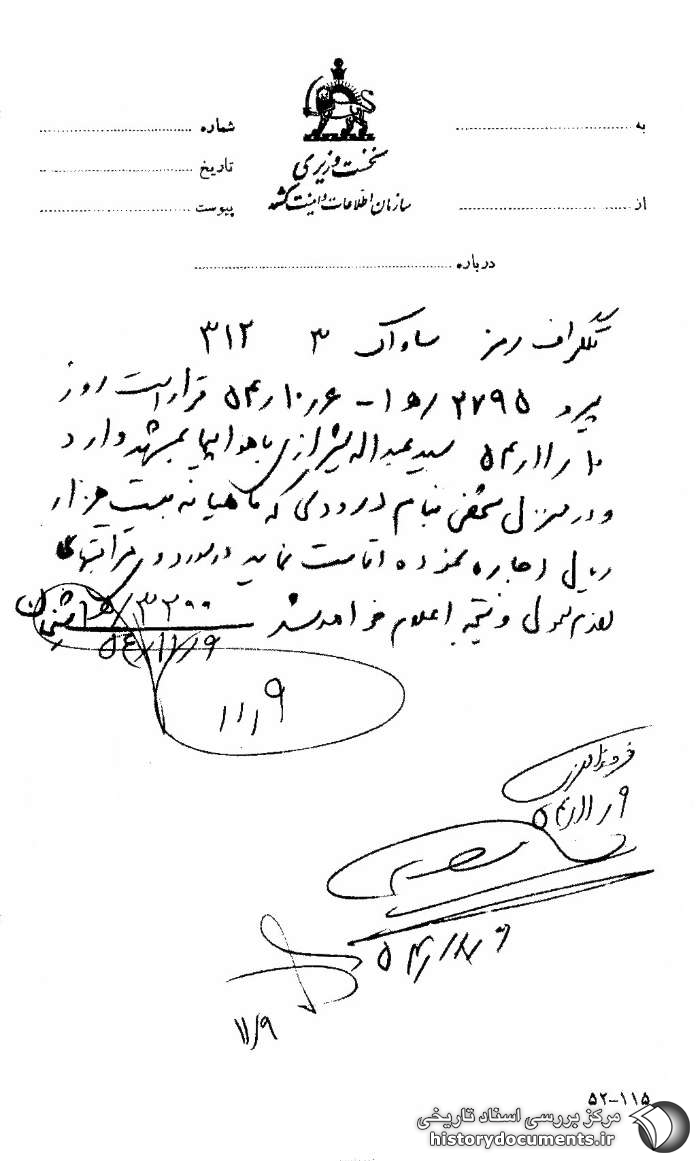 نخست وزیری
سازمان اطلاعات و امنیت کشور
به
از
شماره
تاریخ
پیوست
درباره
تلگراف رمز ساواک ۳ ۳۱۲
پیرو ۲۷۹۵/ ۱ﻫ - ۵۴٫۱۰٫۶ قرار است روز
۵۴٫۱۱٫۱۰ سید عبداله شیرازی با هواپیما بمشهد وارد
و در منزل شخصی بنام درودی که ماهیانه بیست هزار
ریال اجاره نموده اقامت نماید در مورد مراقبتهای
لازم معمول و نتیجه اعلام خواهد شد ۳۳۰۰/ ۱ﻫ شیخان
۵۴/۱۱/۹
۱۱٫۹
۵۴٫۱۱٫۹
۵۴٫۱۱٫۹
۱۱/۹
۵۲-۱۱۵
مرکز بررسی اسناد تاریخی
historydocuments.ir